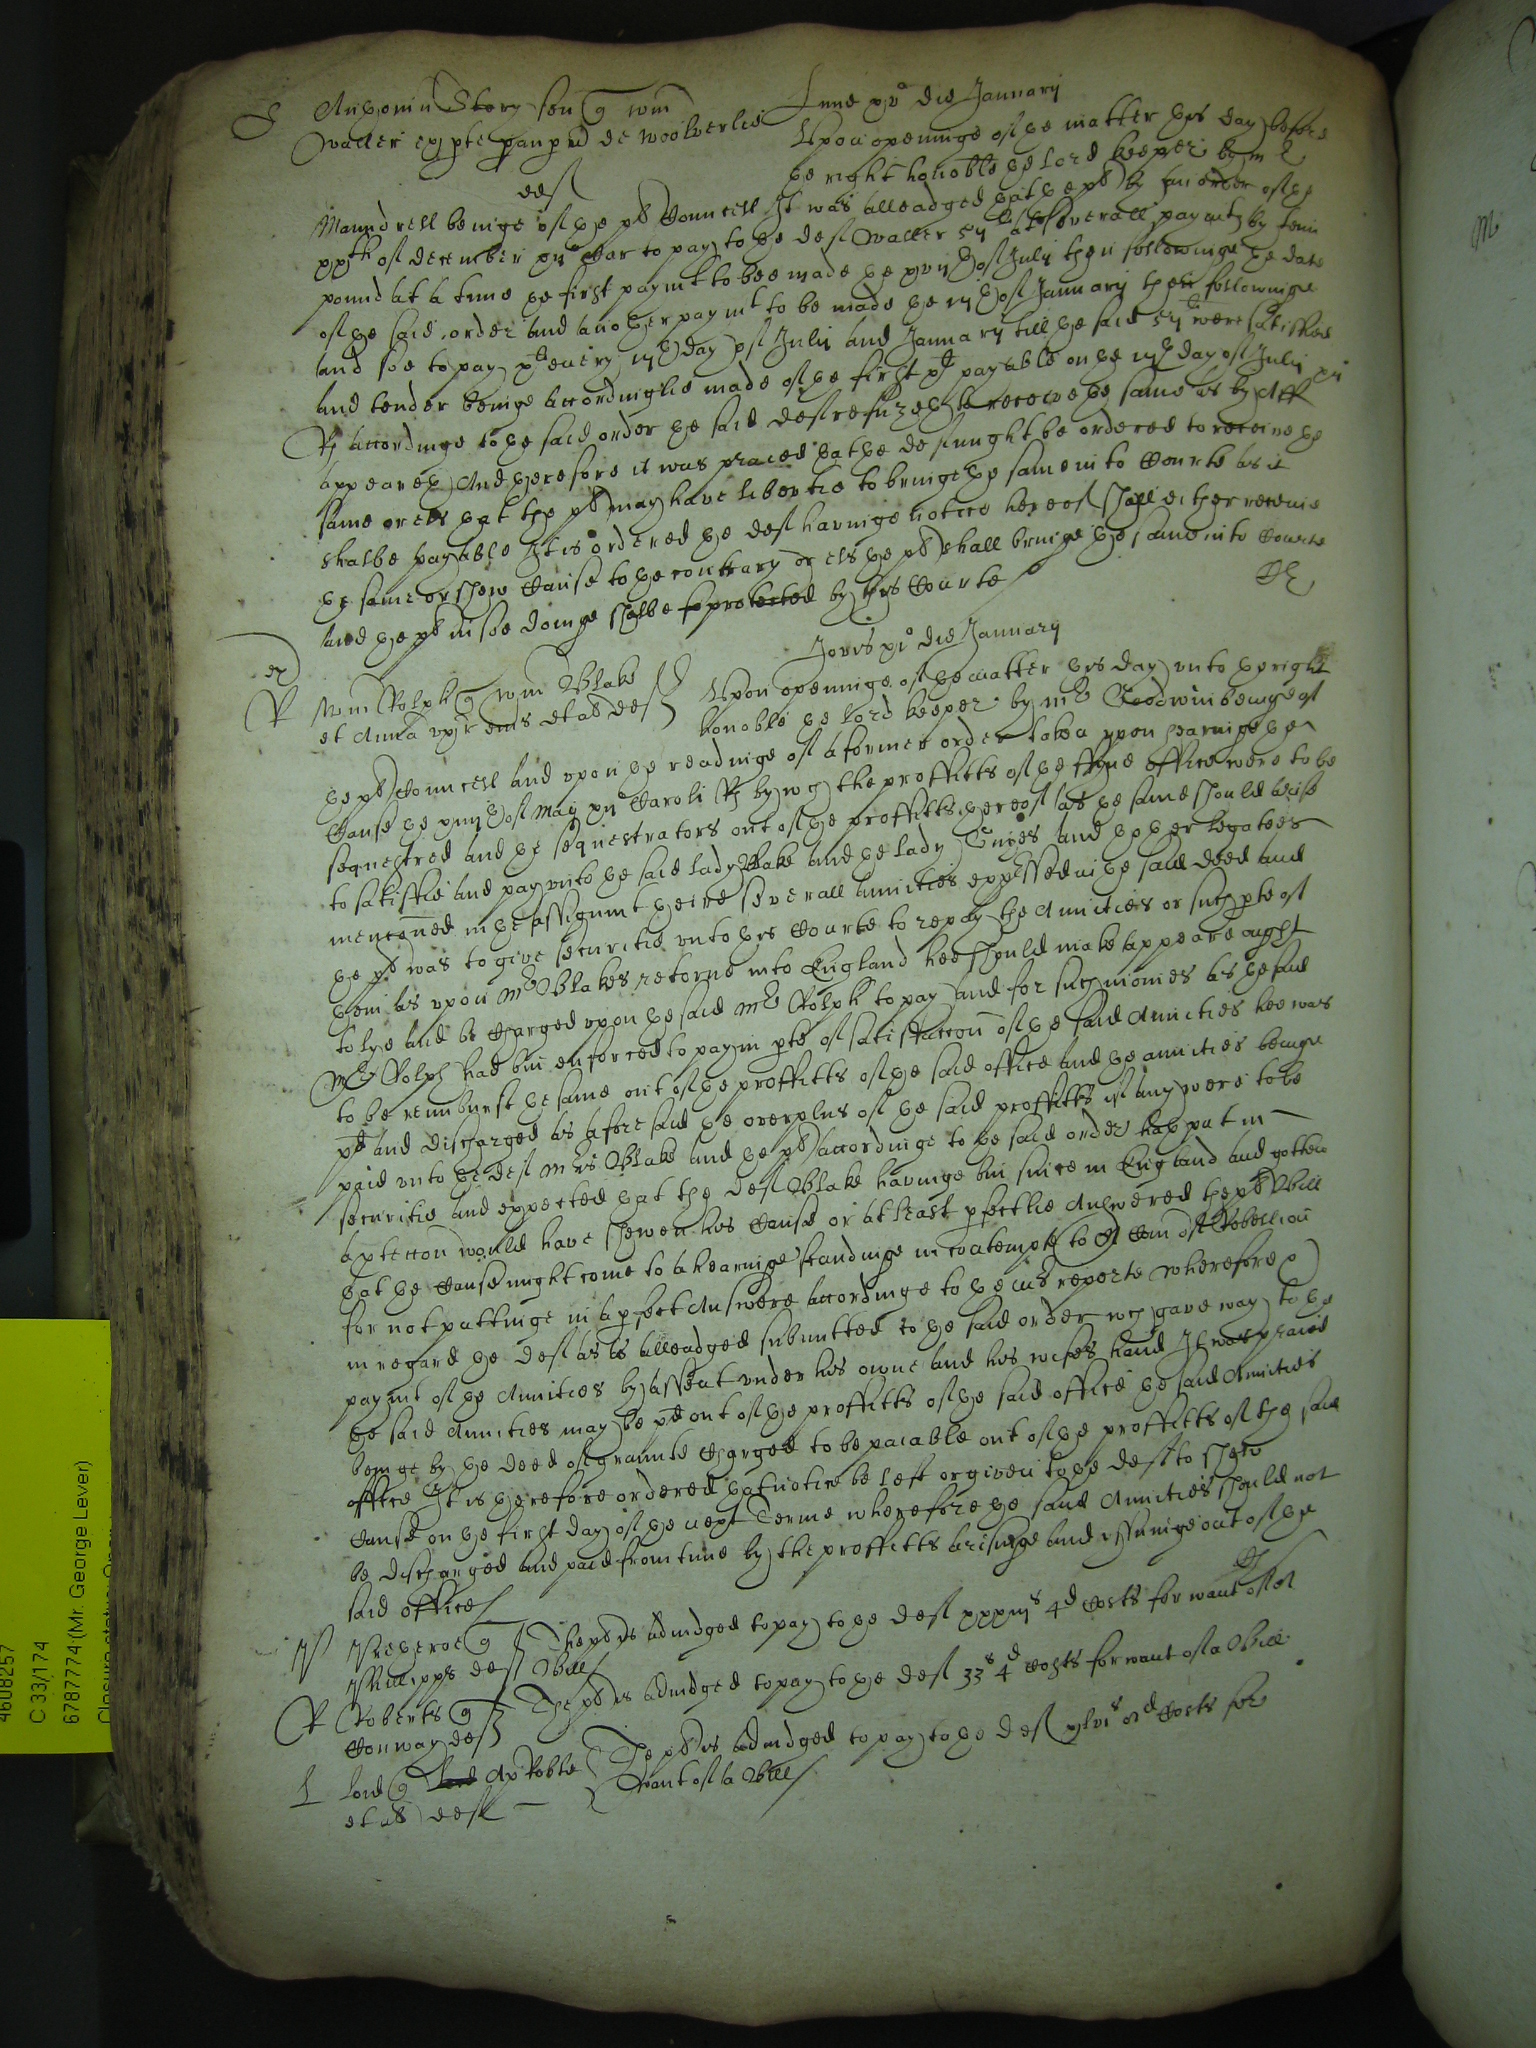 S Anthonin Story sen q wm
Waller ex pte paup d de Woolverley
def
Lune xv° die January
Upon openinge of the matter this day before
the right honoble the Lord Keeper by mr
Maundrell beinge of the plt Councell It was alleadged that the plt by an order of the
xxth of December xii Car to pay to the def Waller at severall paymts by tenn
pound at a time the first paymt to bee made the of July then followinge the date
of the said order and another paymt to be made the of January then followinge
and soe to pay every day of July and January till the said were satisfied
and tender beinge accordinglie made of the first payable on the day of July
R accordinge to the said order the said def refuzeth to receive the same as by Aff
appeareth And therefore it was praied that the def might be ordered to receive the
same or els that the plt may have libertie to bringe the same into Courte as it
shalbe payable It is ordered the def havinge notice hereof shall either receive
the same or shew Cause to the contrary or els the plt shall bringe the same into Courte
and the plt in soe doinge shalbe protected by this Courte
Jovis xi° die January
R Wm Rolph q wm Blake
et Anna uxor eius et al def
Upon openinge of the matter this day unto the right
honoble the Lord Keeper by mr Goodwin beinge of
the plt Councell and upon the readinge of a former order taken upon hearinge the
Cause the of May Caroli R by wch the proffitts of the fyne office were to be
sequestred and the sequestrators out of the proffitts thereof as the same should arise
to satisfie and pay unto the said lady Blake and the lady and other legatees
mencioned in the assignmt theire severall anuities expssed in the said deed and
the plt was to give securitie unto this Courte to repay the Anuities or such pte of
them as upon mr Blakes retorne into England hee should make appeare ought
to lye and be charged upon the said mr Rolph to pay and for such monies as the said
mr Rolph had bin enforced to pay in pte of satisfaccon of the said Anuities hee was
to be reimburst the same out of the proffitts of the said office and the anuities beinge
pd and discharged as aforesaid the overplus of the said proffitts if any were to be
paid unto the def mrs Blake and the plt accordinge to the said order hath put in
securitie and expected that the def Blake havinge bin since in England and gotten
a ptection would have shewen his Cause or at least pfectlie Answered the plt Bill
that the Cause might come to a hearinge standinge in contempte to A Com of Rebellion
for not puttinge in a pfect Answere accordinge to the mrs reporte wherefore
in regard the def as is alleadged submitted to the said order wch gave way to the
paymt of the Anuities by assent under his owne and his wifes hand It was praied
the said Anuities may be pd out of the proffitts of the said office the said Anuities
beinge by the deed of graunte charged to be paiable out of the proffitts of the said
office It is therefore ordered that notice be left or given to the def to shew
Cause on the first day of the next Terme wherefore the said Anuities should not
be discharged and paid from time by the proffitts arisinge and issuinge out of the
said office
The plt is adiudged to pay to the def xxxiiis 4d Costs for want of a
Phillipps def Bill
R Roberts q
Conway def
The plt is adiudged to pay to the def 33s 4d Costs for want of a Bill
L Lord q Ap Roble
et al def
The plt is adiudged to pay to the def Costs for
want of a Bill
M
4608257
C 33/174
6787774 (Mr. George Lever)